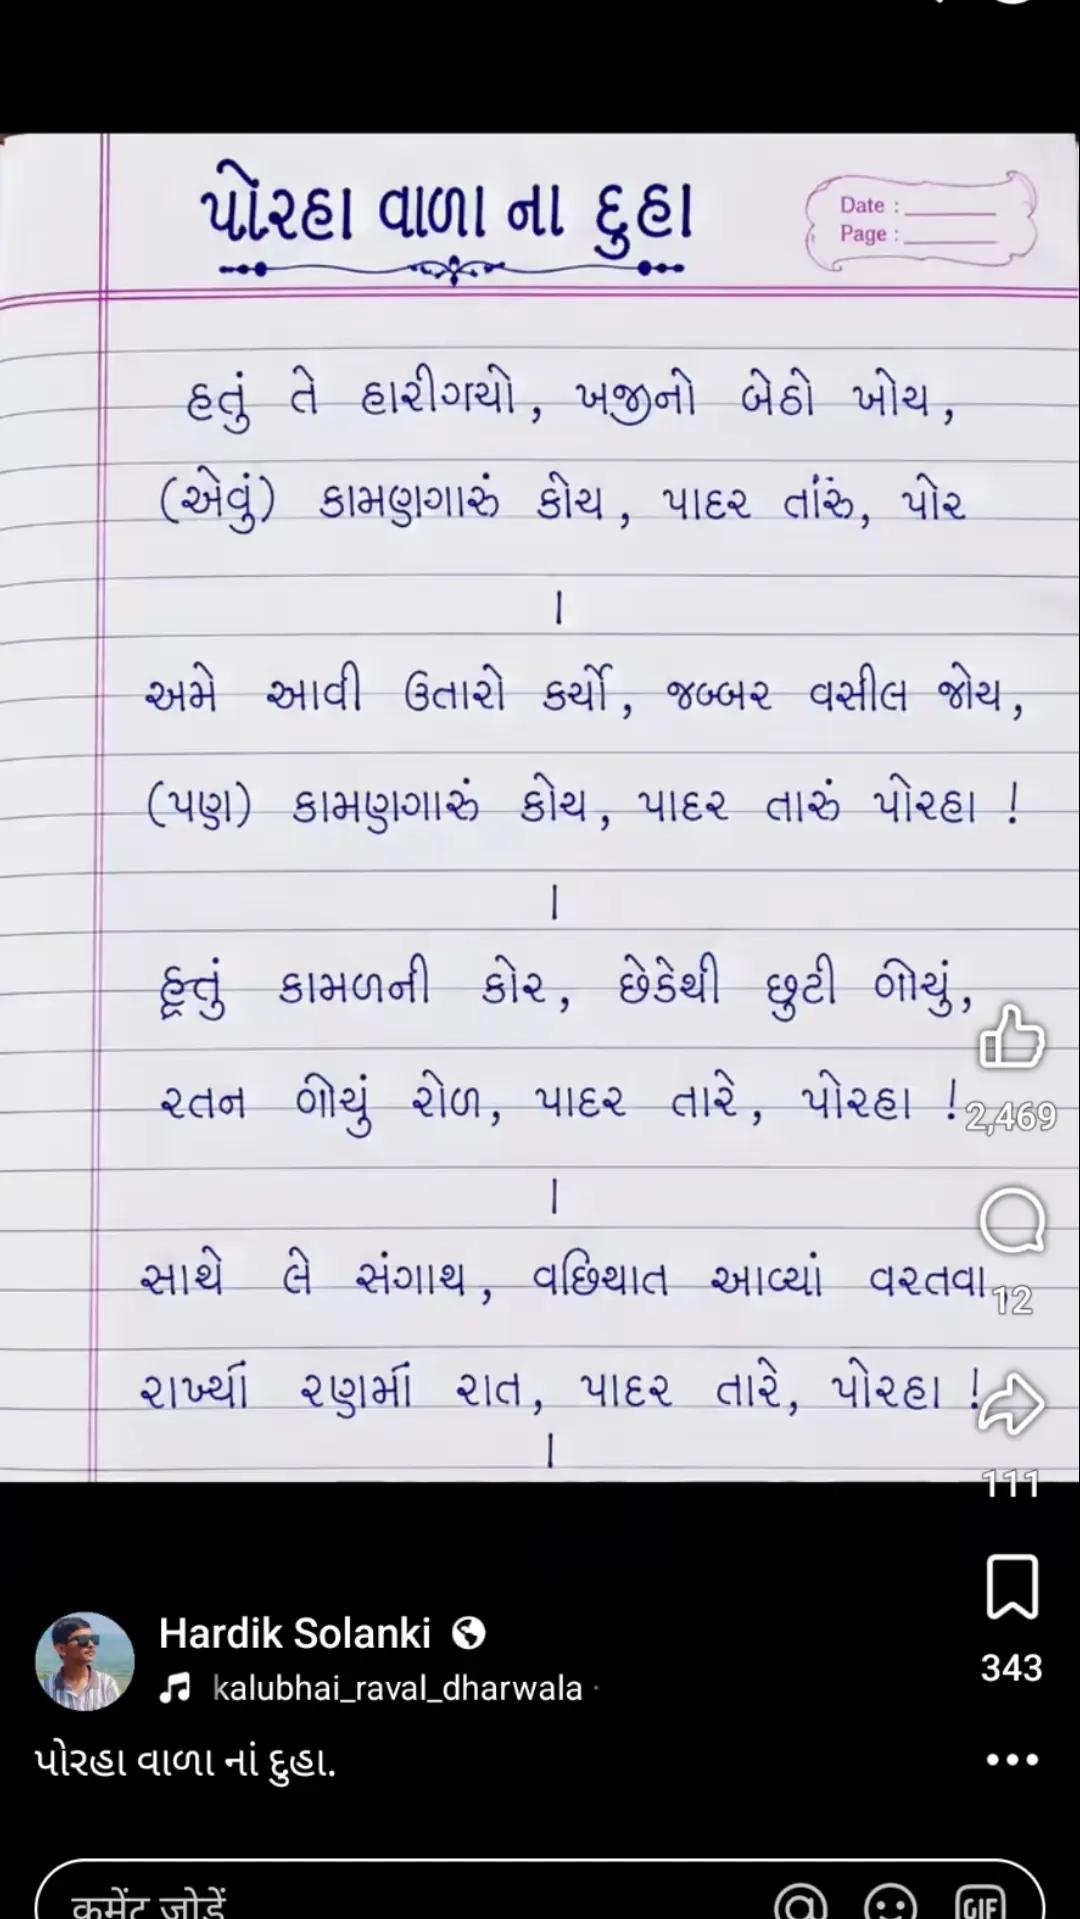 પોરહા વાળા ના દુહા
Date :
Page :
હતું તે હારીગયો, ખજીનો બેઠો ખોય,
(એવું) કામણગારું કોય, પાદર તાંરું, પોર
|
અમે આવી ઉતારો કર્યો, જબ્બર વસીલ જોય,
(પણ) કામણગારું કોય, પાદર તારું પોરહા !
|
કામળની કોર, છેડેથી છુટી
રતન રોળ, પાદર તારે, પોરહા !
2,469
|
સાથે લે સંગાથ, વછિયાત આવ્યાં વરતવા
12
રાખ્યાં રણમાં રાત, પાદર તારે, પોરહા !
|
111
Hardik Solanki
kalubhai_raval_dharwala
343
પોરહા વાળા નાં દુહા.
कमेंट जोड़ें
GIF